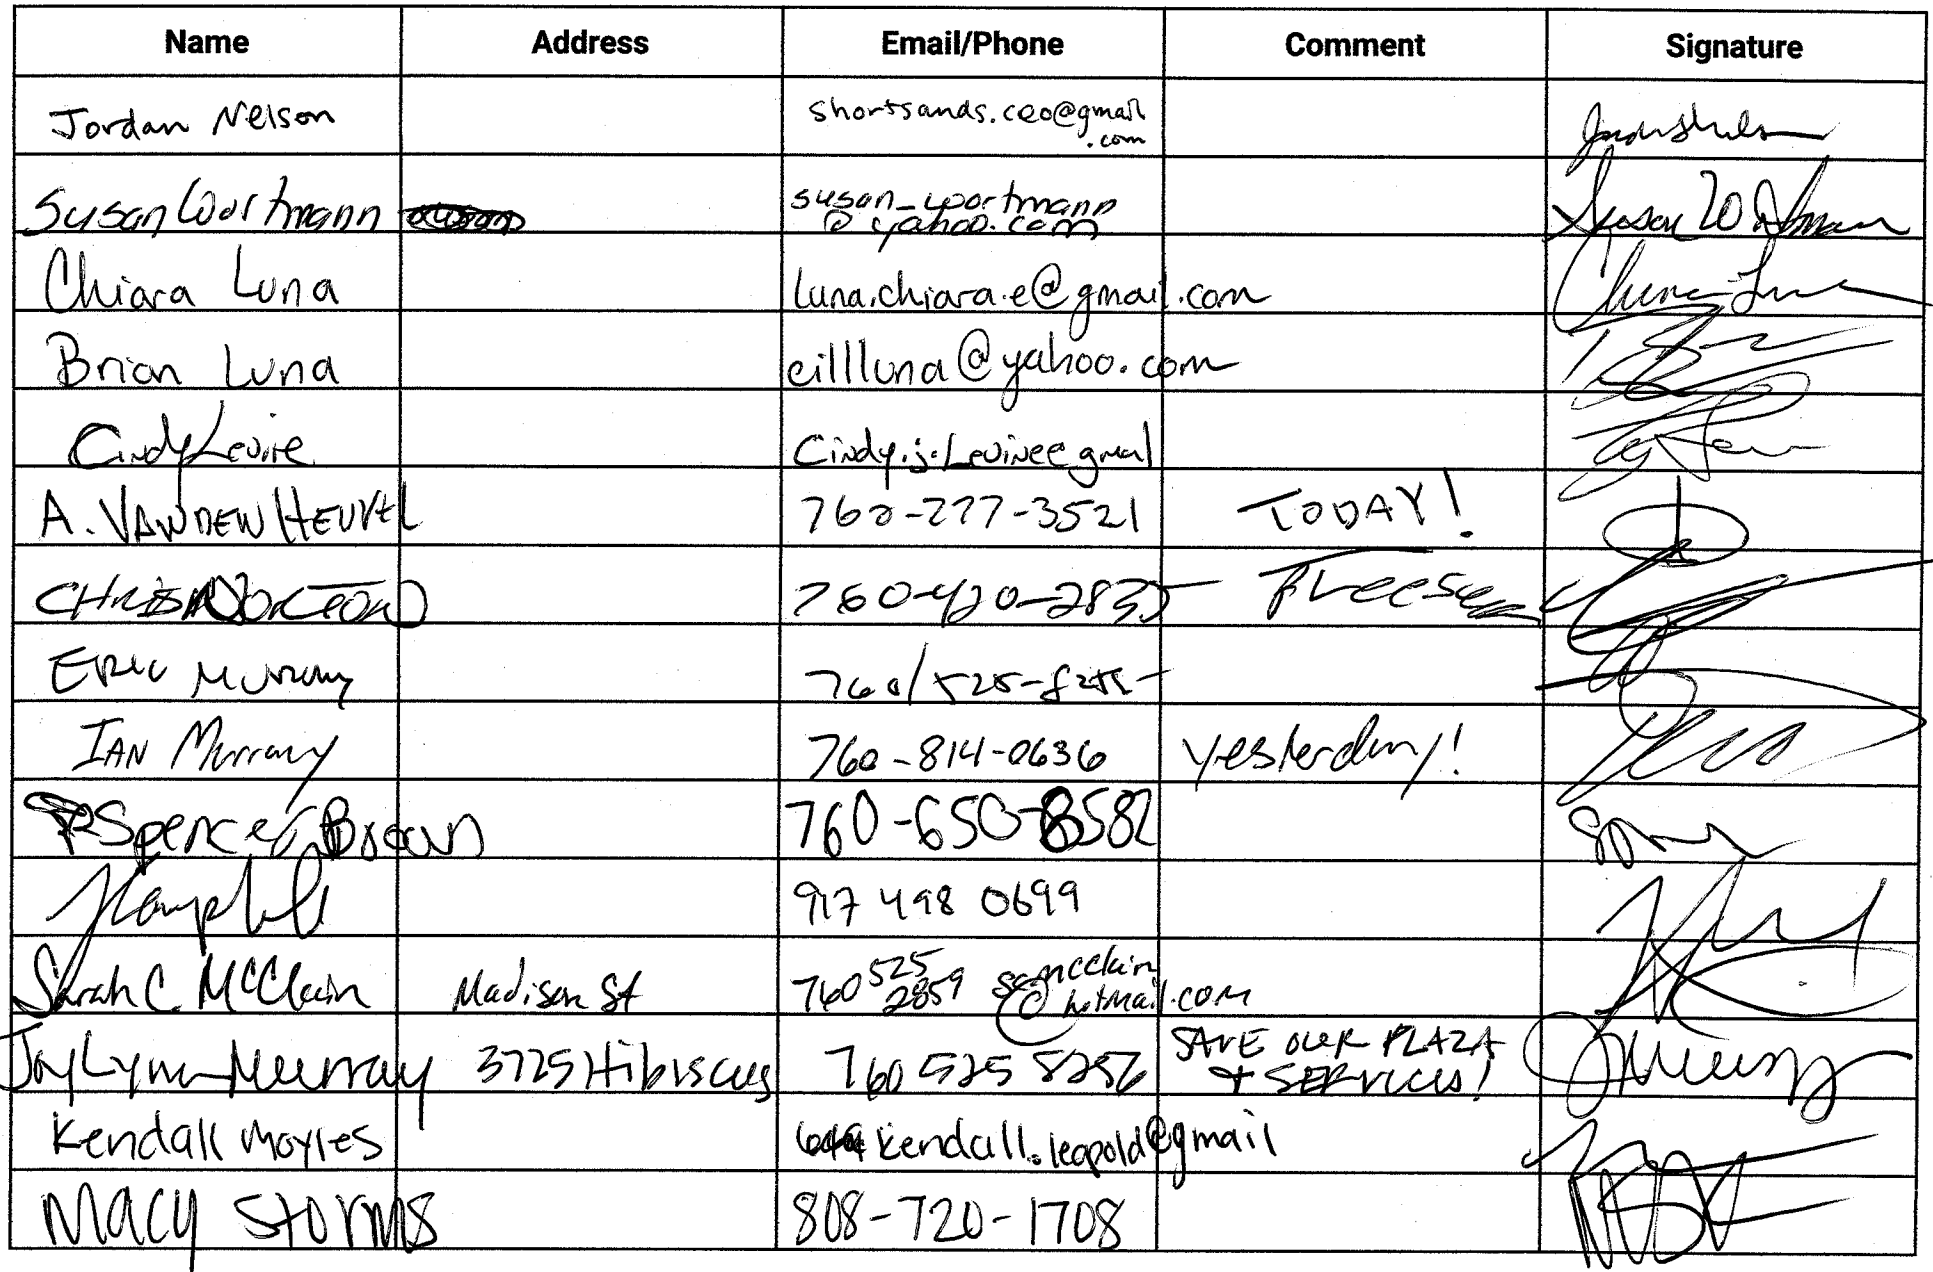 Name Address Email/Phone Comment Signature
Jordan Nelson shortsands.ceo@gmail
.com
Susan Wortmann susan_wortmann
@yahoo.com
Chiara Luna luna.chiara.e@gmail.com
Brian Luna eillluna@yahoo.com
Cindy Levine Cindy.j.Levine@gmail
A. VANDEN HEUVEL 760-277-3521 TODAY!
CHRIS NORTON 760-420-2835
ERIC Murray 760/525-8255
IAN Murray 760-814-0636 yesterday!
Spencer Brown 760-650-8582
917 498 0699
Sarah C. McClain Madison St 760 525 2859 samcclain
@hotmail.com
JoyLynn Murray 3725 Hibiscus 760 525 8256 SAVE OUR PLAZA
+ SERVICES!
Kendall Moyles kendall.leopold@gmail
MACY STORMS 808-720-1708